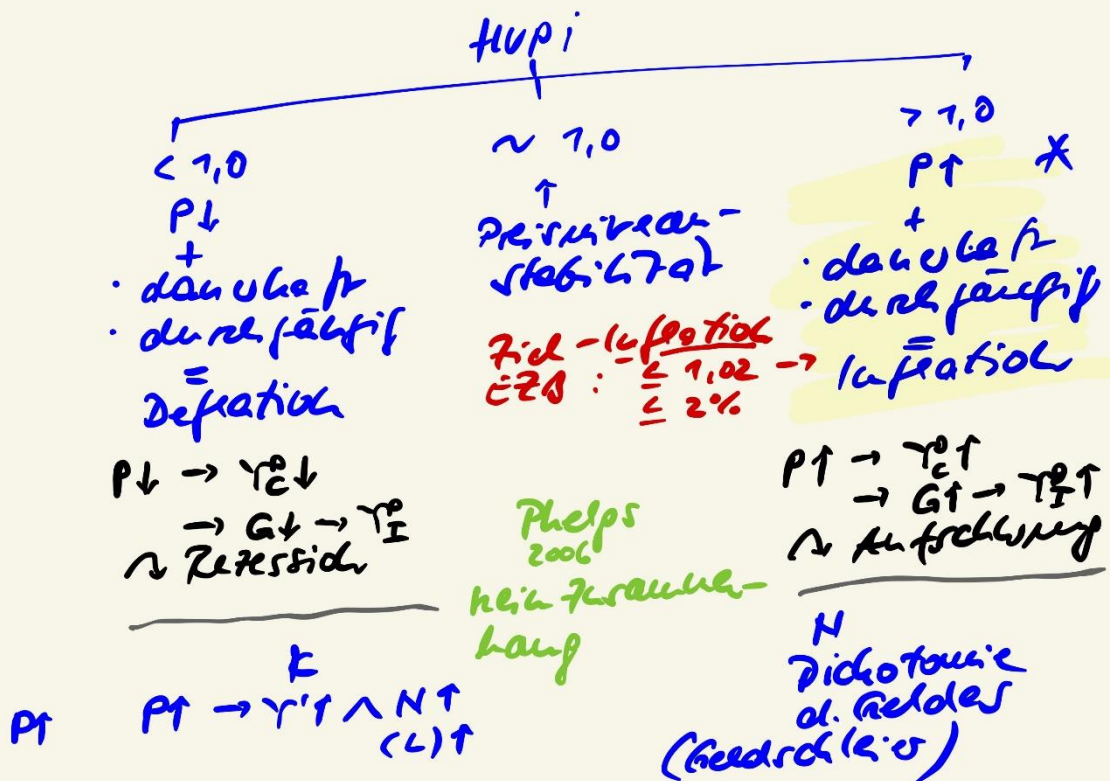 HVPi
< 1,0
P↓
+
· dauerhaft
· durchgängig
=
Deflation
P↓ → Y_C^D ↓
→ G↓ → Y_I^D
↷ Rezession
~ 1,0
↑
Preisniveau-
stabilität
Ziel-Inflation
EZB : ≤ 1,02 →
≤ 2%
Phelps
2006
kein Zusammen-
hang
> 1,0
P↑ *
+
· dauerhaft
· durchgängig
=
Inflation
P↑ → Y_C^D ↑
→ G↑ → Y_I^D ↑
↷ Aufschwung
K
P↑ P↑ → Y^r ↑ ∧ N↑
(L)↑
N
Dichotomie
d. Geldes
(Geldschleier)